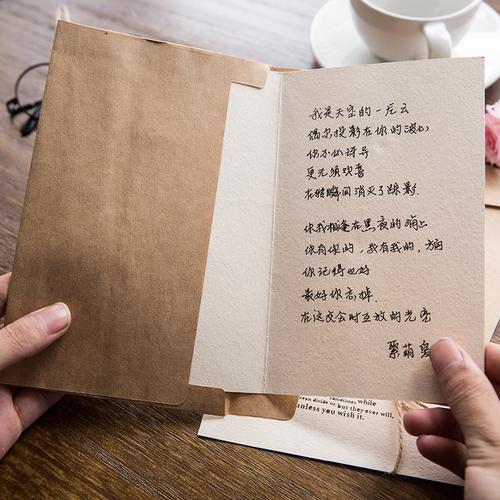 我是天空的一片云
偶尔投影在你的波心
你不必讶异
更无须欢喜
在转瞬间消灭了踪影.
你我相逢在黑夜的海上
你有你的，我有我的，方向
你记得也好
最好你忘掉.
在这交会时互放的光亮
聚萌
sometimes while
cean divide us, but they ever will,
nless you wish it.